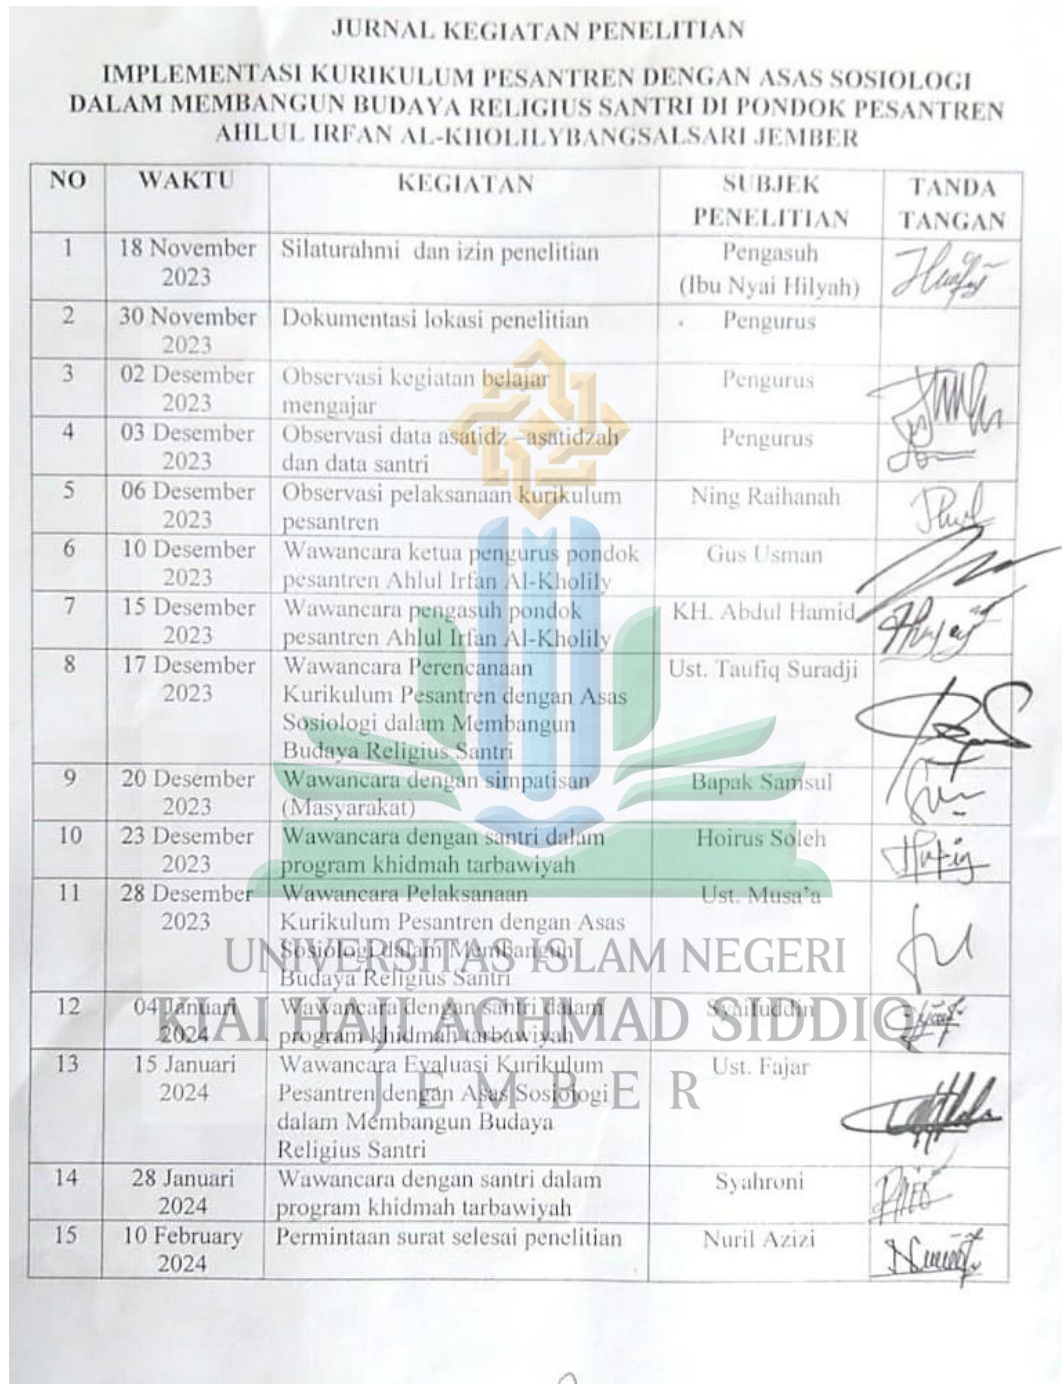 JURNAL KEGIATAN PENELITIAN
IMPLEMENTASI KURIKULUM PESANTREN DENGAN ASAS SOSIOLOGI
DALAM MEMBANGUN BUDAYA RELIGIUS SANTRI DI PONDOK PESANTREN
AHLUL IRFAN AL-KHOLILYBANGSALSARI JEMBER
NO WAKTU KEGIATAN SUBJEK PENELITIAN TANDA TANGAN
1 18 November 2023 Silaturahmi dan izin penelitian Pengasuh (Ibu Nyai Hilyah)
2 30 November 2023 Dokumentasi lokasi penelitian Pengurus
3 02 Desember 2023 Observasi kegiatan belajar mengajar Pengurus
4 03 Desember 2023 Observasi data asatidz –asatidzah dan data santri Pengurus
5 06 Desember 2023 Observasi pelaksanaan kurikulum pesantren Ning Raihanah
6 10 Desember 2023 Wawancara ketua pengurus pondok pesantren Ahlul Irfan Al-Kholily Gus Usman
7 15 Desember 2023 Wawancara pengasuh pondok pesantren Ahlul Irfan Al-Kholily KH. Abdul Hamid
8 17 Desember 2023 Wawancara Perencanaan Kurikulum Pesantren dengan Asas Sosiologi dalam Membangun Budaya Religius Santri Ust. Taufiq Suradji
9 20 Desember 2023 Wawancara dengan simpatisan (Masyarakat) Bapak Samsul
10 23 Desember 2023 Wawancara dengan santri dalam program khidmah tarbawiyah Hoirus Soleh
11 28 Desember 2023 Wawancara Pelaksanaan Kurikulum Pesantren dengan Asas Sosiologi dalam Membangun Budaya Religius Santri Ust. Musa'a
12 04 Januari 2024 Wawancara dengan santri dalam program khidmah tarbawiyah Syaifuddin
13 15 Januari 2024 Wawancara Evaluasi Kurikulum Pesantren dengan Asas Sosiologi dalam Membangun Budaya Religius Santri Ust. Fajar
14 28 Januari 2024 Wawancara dengan santri dalam program khidmah tarbawiyah Syahroni
15 10 February 2024 Permintaan surat selesai penelitian Nuril Azizi
UNIVERSITAS ISLAM NEGERI
KIAI HAJI ACHMAD SIDDIQ
JEMBER